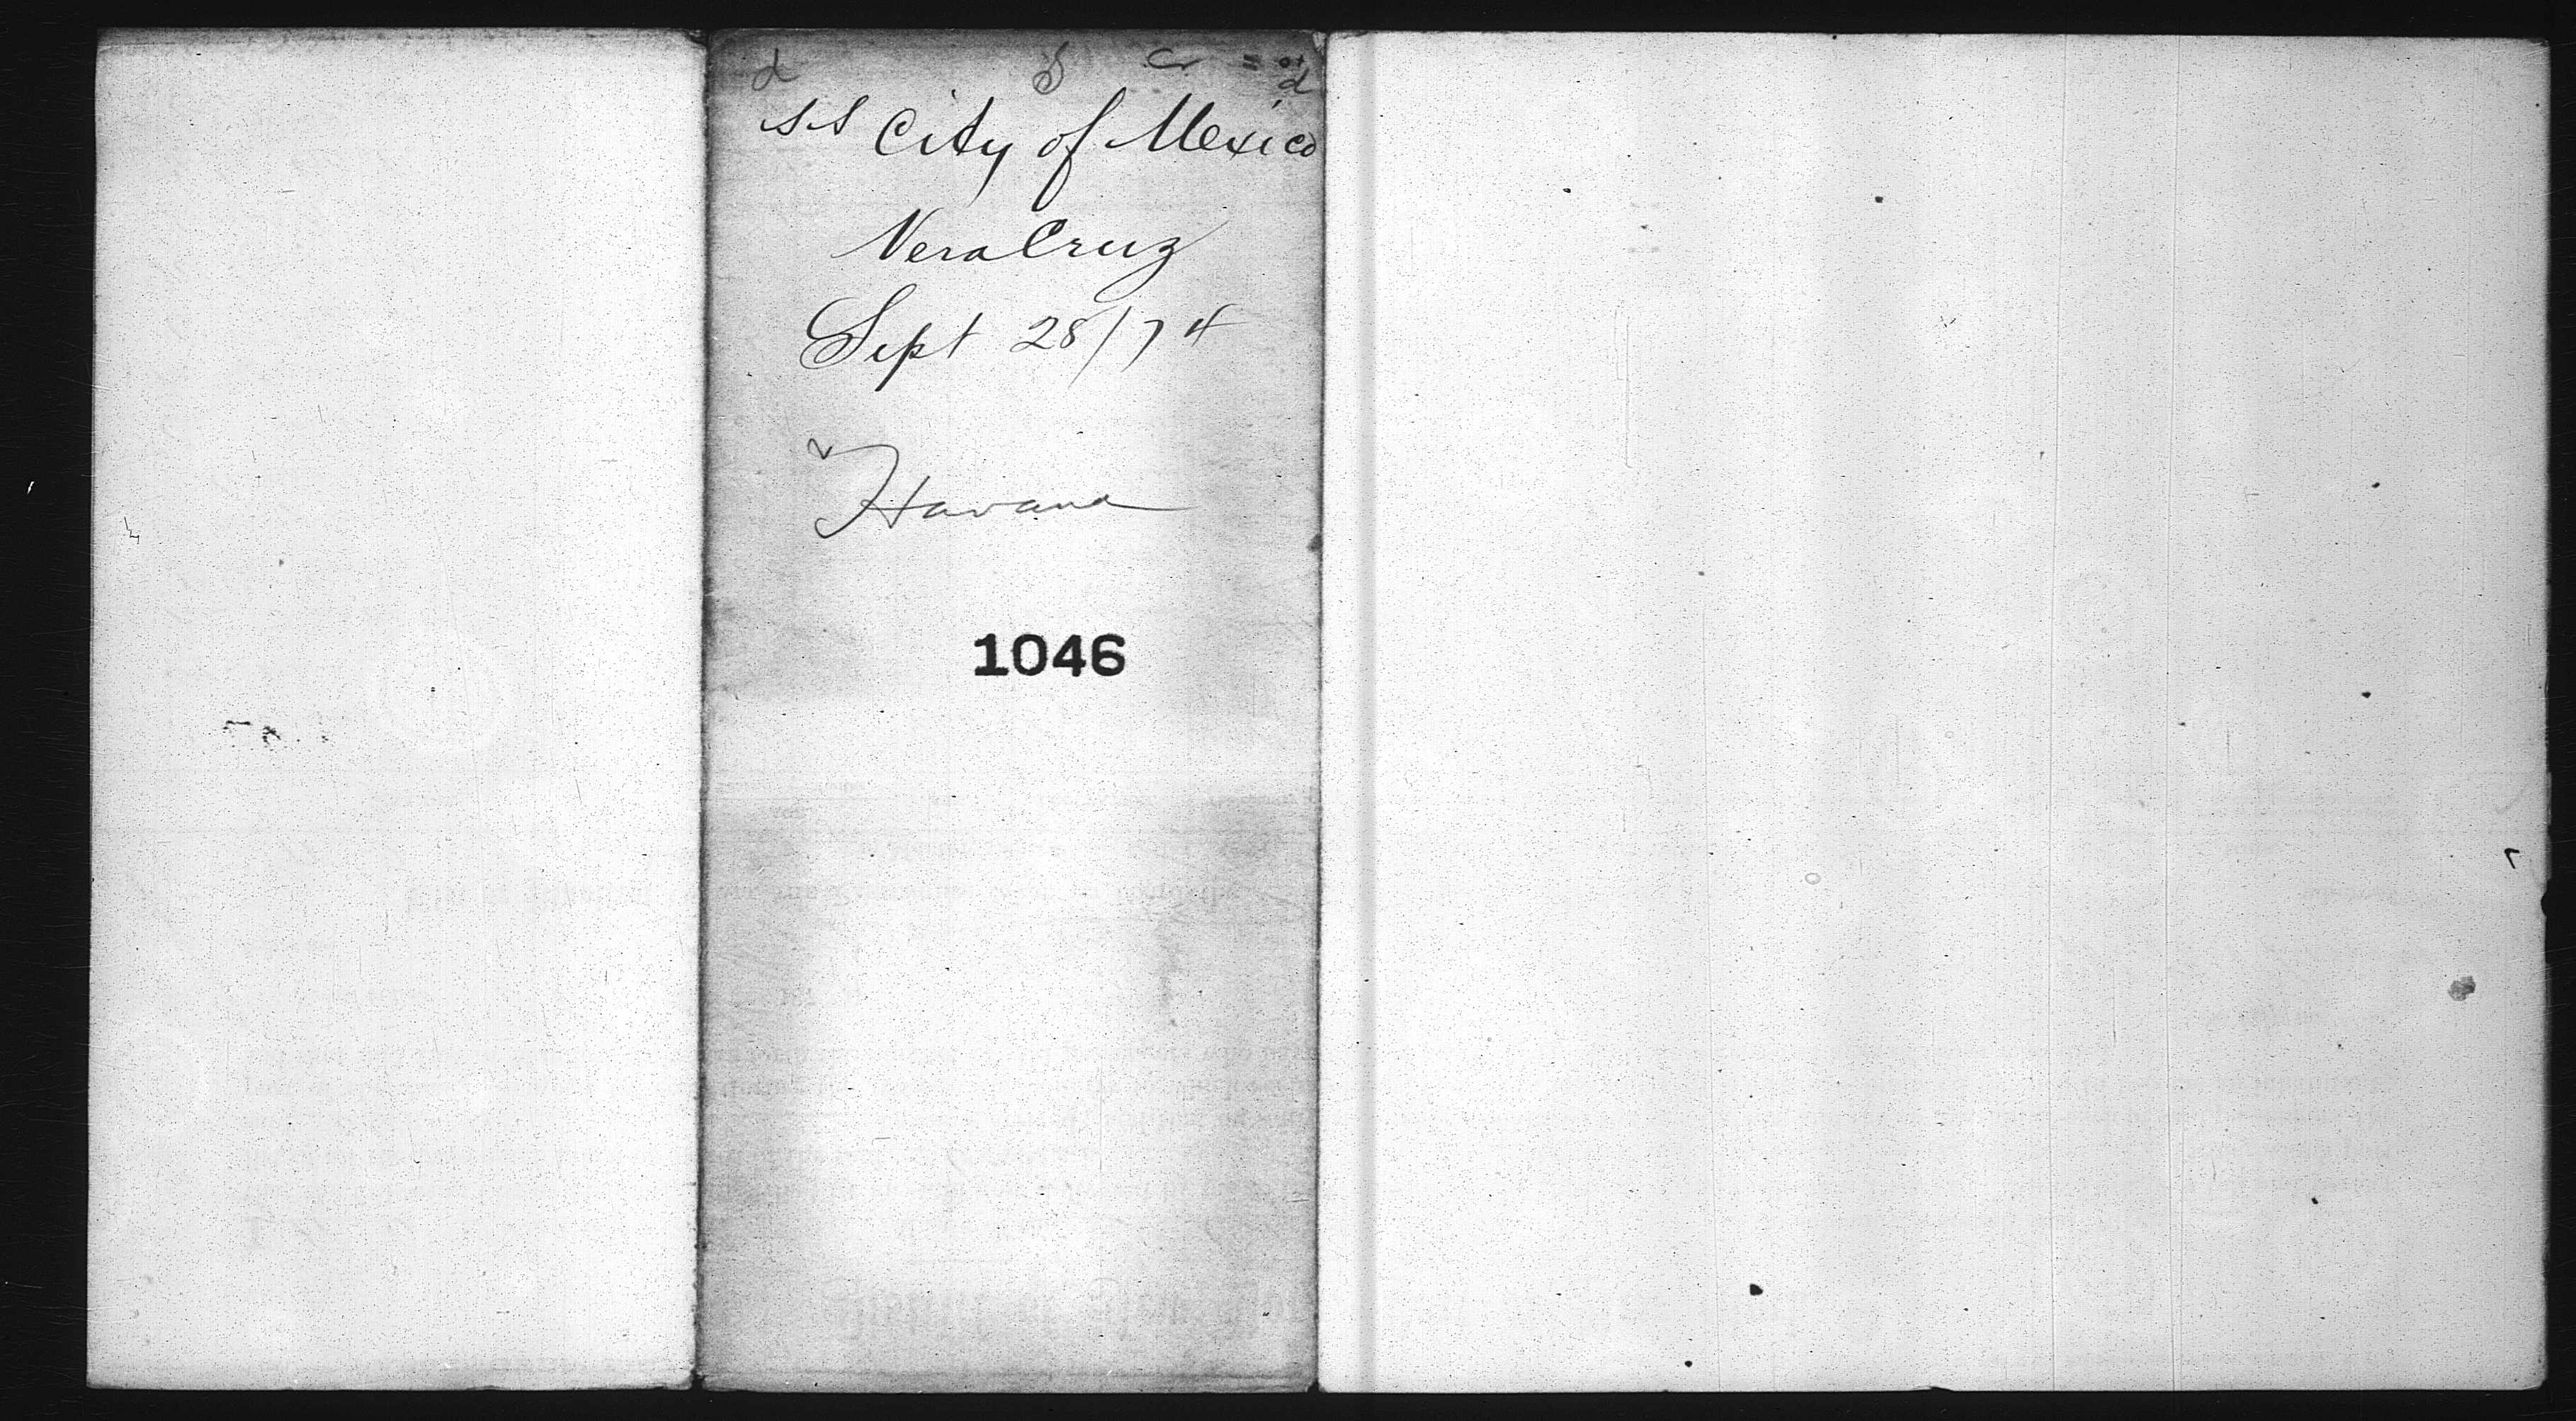 SS City of Mexico
Vera Cruz
Sept 28/74
Havana
1046